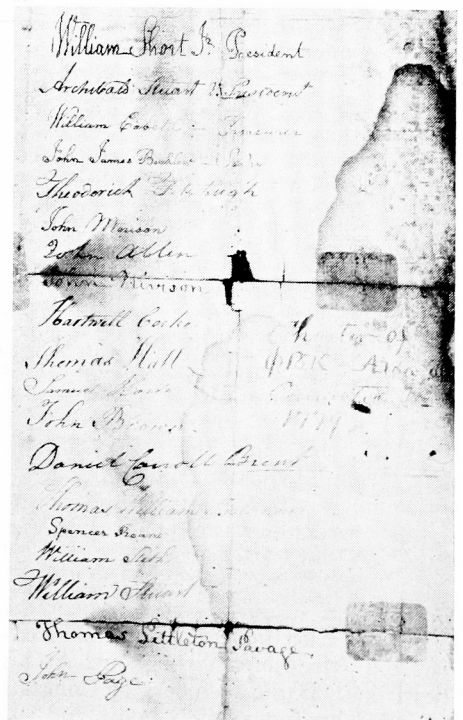 William Short Jr. President
Archibald Stuart V. President
William Treasurer
John James
Theodorick Fitzhugh
John Morison
John Allen
John Nivison
Hartwell Cocke
Thomas Hall
Samuel
John Brown
Daniel Carroll Brent
Thomas William
Spencer Roane
William Stith
Wm William Stuart
Thomas Littleton Savage
John Page
of
ΦBK
1779